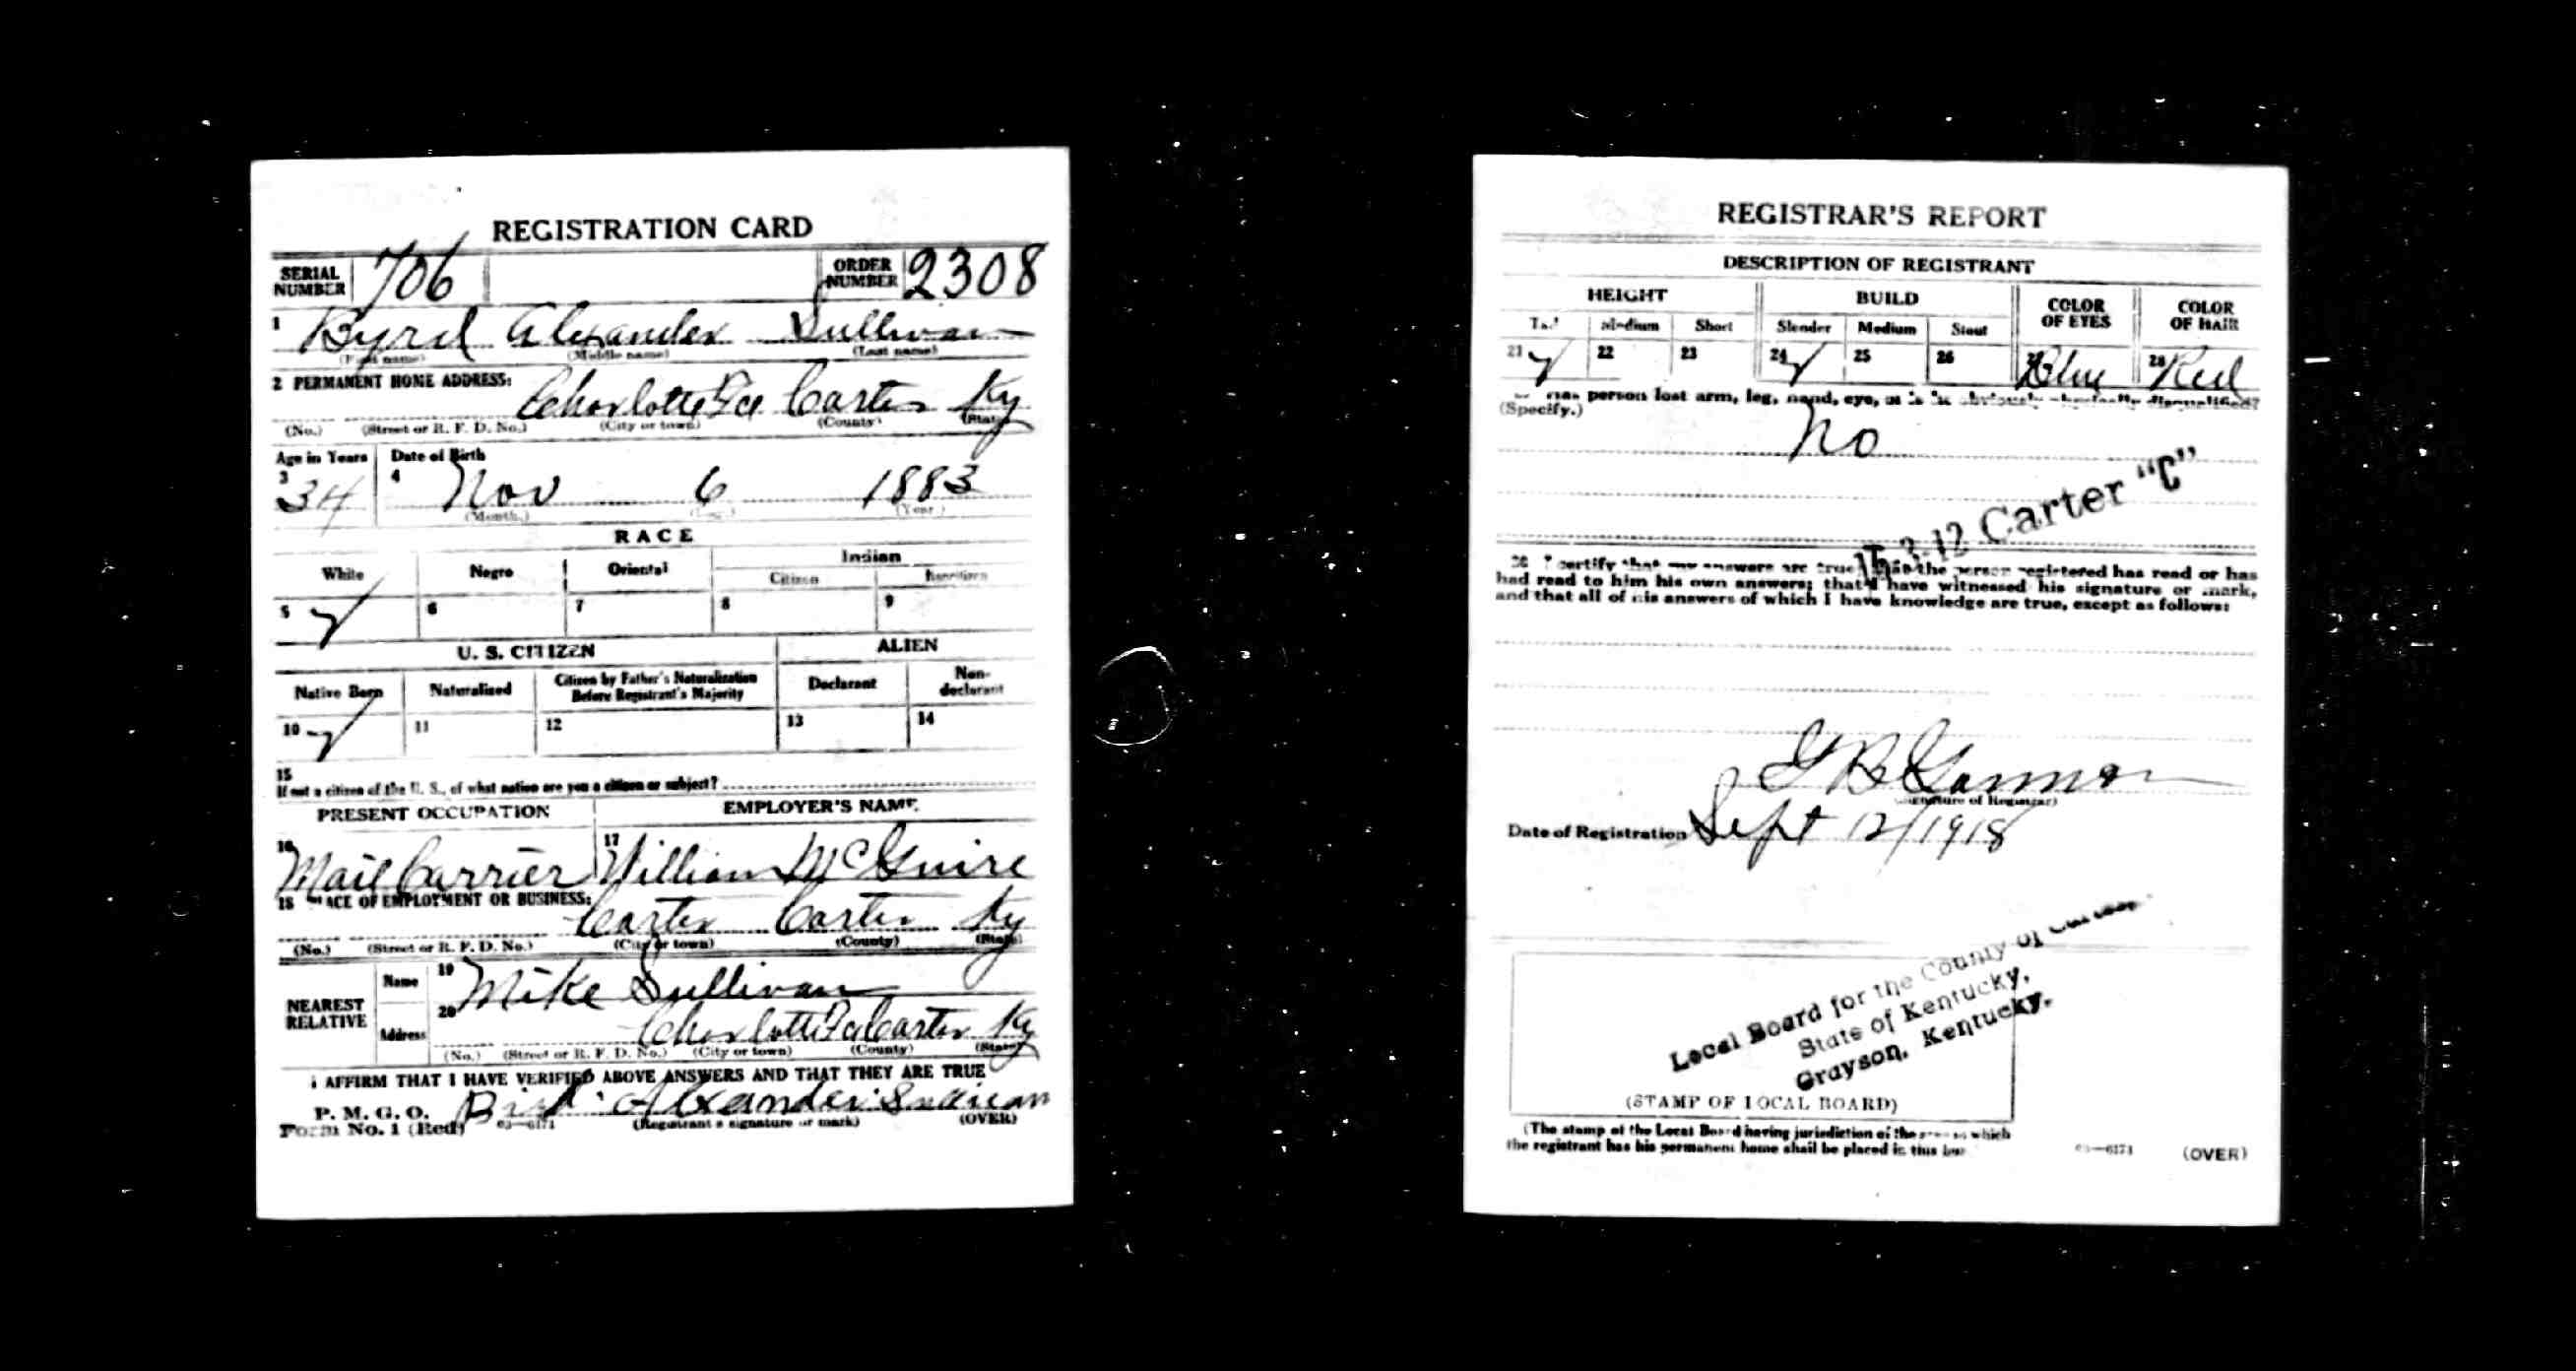 REGISTRATION CARD
SERIAL NUMBER 706 ORDER NUMBER 2308
1 Byrd Alexander Sullivan
(First name) (Middle name) (Last name)
2 PERMANENT HOME ADDRESS:
Charlotte Fce Carter Ky
(No.) (Street or R. F. D. No.) (City or town) (County) (State)
Age in Years Date of Birth
3 34 4 Nov 6 1883
(Month.) (Day.) (Year.)
RACE
White Negro Oriental Indian
Citizen Noncitizen
5 ✓ 6 7 8 9
U. S. CITIZEN ALIEN
Native Born Naturalized Citizen by Father's Naturalization Before Registrant's Majority Declarant Non-declarant
10 ✓ 11 12 13 14
15
If not a citizen of the U. S., of what nation are you a citizen or subject?
PRESENT OCCUPATION EMPLOYER'S NAME
16 Mail Carrier 17 William McGuire
18 PLACE OF EMPLOYMENT OR BUSINESS:
Carter Carter Ky
(No.) (Street or R. F. D. No.) (City or town) (County) (State)
NEAREST RELATIVE
Name 19 Mike Sullivan
Address 20 Charlotte Fce Carter Ky
(No.) (Street or R. F. D. No.) (City or town) (County) (State)
I AFFIRM THAT I HAVE VERIFIED ABOVE ANSWERS AND THAT THEY ARE TRUE
P. M. G. O.
Form No. 1 (Red) 03—6171 Alexander
(Registrant's signature or mark) (OVER)
REGISTRAR'S REPORT
DESCRIPTION OF REGISTRANT
HEIGHT BUILD COLOR OF EYES COLOR OF HAIR
Tall Medium Short Slender Medium Stout
21 ✓ 22 23 24 ✓ 25 26 27 Blue 28 Red
Has person lost arm, leg, hand, eye, or is he obviously physically disqualified?
(Specify.)
No
Carter "C"
I certify that my answers are true; the person registered has read or has
had read to him his own answers; that I have witnessed his signature or mark,
and that all of his answers of which I have knowledge are true, except as follows:
G B
(Signature of Registrar)
Date of Registration Sept 12/1918
Local Board for the County of Carter,
State of Kentucky,
Grayson, Kentucky.
(STAMP OF LOCAL BOARD)
(The stamp of the Local Board having jurisdiction of the area in which
the registrant has his permanent home shall be placed in this box.)
03—6171 (OVER)